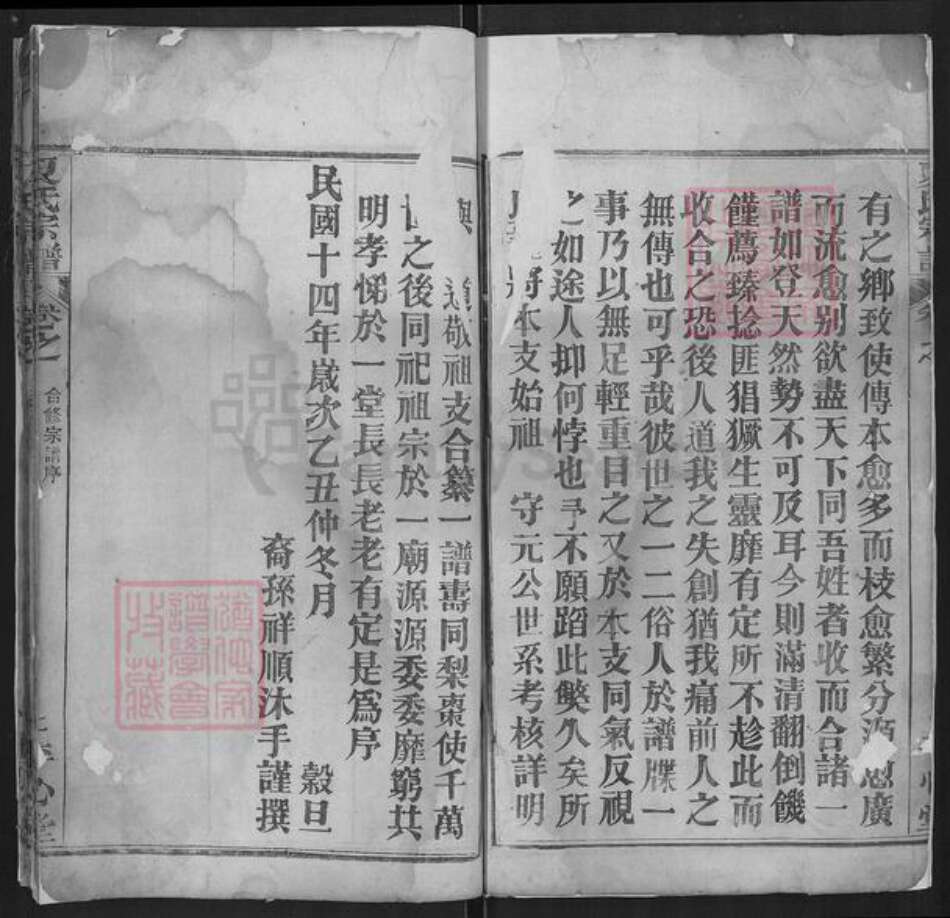 有之鄉致使傳本愈多而枝愈繁分源愈廣
而流愈别欲盡天下同吾姓者收而合諸一
譜如登天然勢不可及耳今則滿清翻倒饑
饉薦臻捻匪猖獗生靈靡有定所不趁此而
收合之恐後人道我之失創猶我痛前人之
無傳也可乎哉彼世之一二俗人於譜牒一
事乃以無足輕重目之又於本支同氣反視
之如途人抑何悖也予不願蹈此獘久矣所
將本支始祖 守元公世系考核詳明
與 道敬祖支合纂一譜壽同梨棗使千萬
世之後同祀祖宗於一廟源源委委靡窮共
明孝悌於一堂長長老老有定是爲序
民國十四年嵗次乙丑仲冬月 榖旦
裔孫祥順沐手謹撰
氏宗譜 卷之一 合修宗譜序
譜學會
收藏